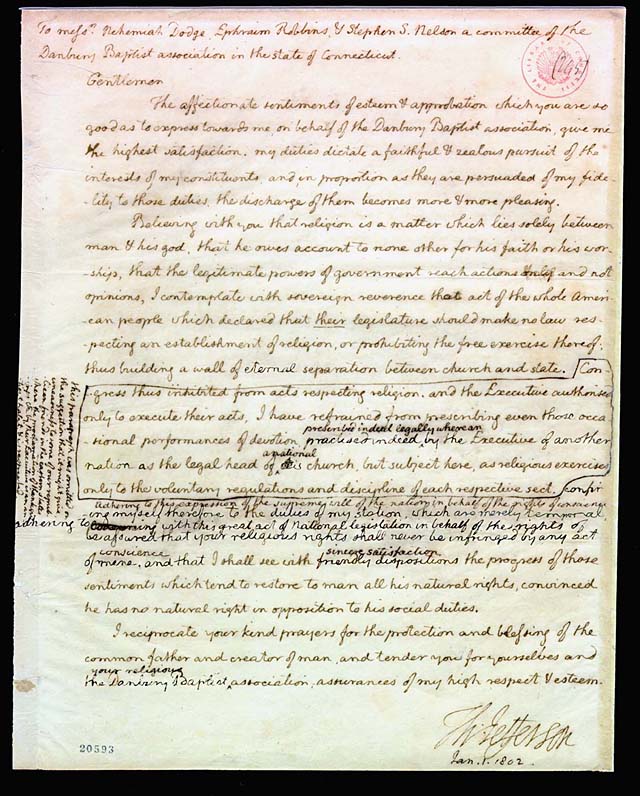 To messrs. Nehemiah Dodge, Ephraim Robbins, & Stephen S. Nelson a committee of the
Danbury Baptist association in the state of Connecticut.
Gentlemen
The affectionate sentiments of esteem & approbation which you are so
good as to express towards me, on behalf of the Danbury Baptist association, give me
the highest satisfaction. my duties dictate a faithful & zealous pursuit of the
interests of my constituents, and, in proportion as they are persuaded of my fide-
-lity to those duties, the discharge of them becomes more & more pleasing.
Believing with you that religion is a matter which lies solely between
man & his god, that he owes account to none other for his faith or his wor-
-ship, that the legitimate powers of government reach actions only and not
opinions, I contemplate with sovereign reverence that act of the whole Ameri-
-can people which declared that their legislature should make no law res-
-pecting an establishment of religion, or prohibiting the free exercise thereof;
thus building a wall of eternal separation between church and state. Con-
-gress thus inhibited from acts respecting religion, and the Executive authorised
only to execute their acts, I have refrained from prescribing even those occa
-sional performances of devotion
prescribed indeed legally where an
practised indeed by the Executive of another
nation as the legal head of
a national
its church, but subject here, as religious exercises
only to the voluntary regulations and discipline of each respective sect.
confin
adhering to this expression of the supreme will of the nation in behalf of the rights of conscience
ing myself therefore to the duties of my station, which are merely temporal,
adhering to
with this great act of National legislation in behalf of the rights of
be assured that your religious rights shall never be infringed by any act
conscience
sincere satisfaction
of mine, and that I shall see with friendly dispositions the progress of those
sentiments which tend to restore to man all his natural rights, convinced
he has no natural right in opposition to his social duties.
I reciprocate your kind prayers for the protection and blessing of the
common father and creator of man, and tender you for yourselves and
your religious
the Danbury Baptist association, assurances of my high respect & esteem.
Th Jefferson
Jan. 1. 1802.
this paragraph was omitted
20593